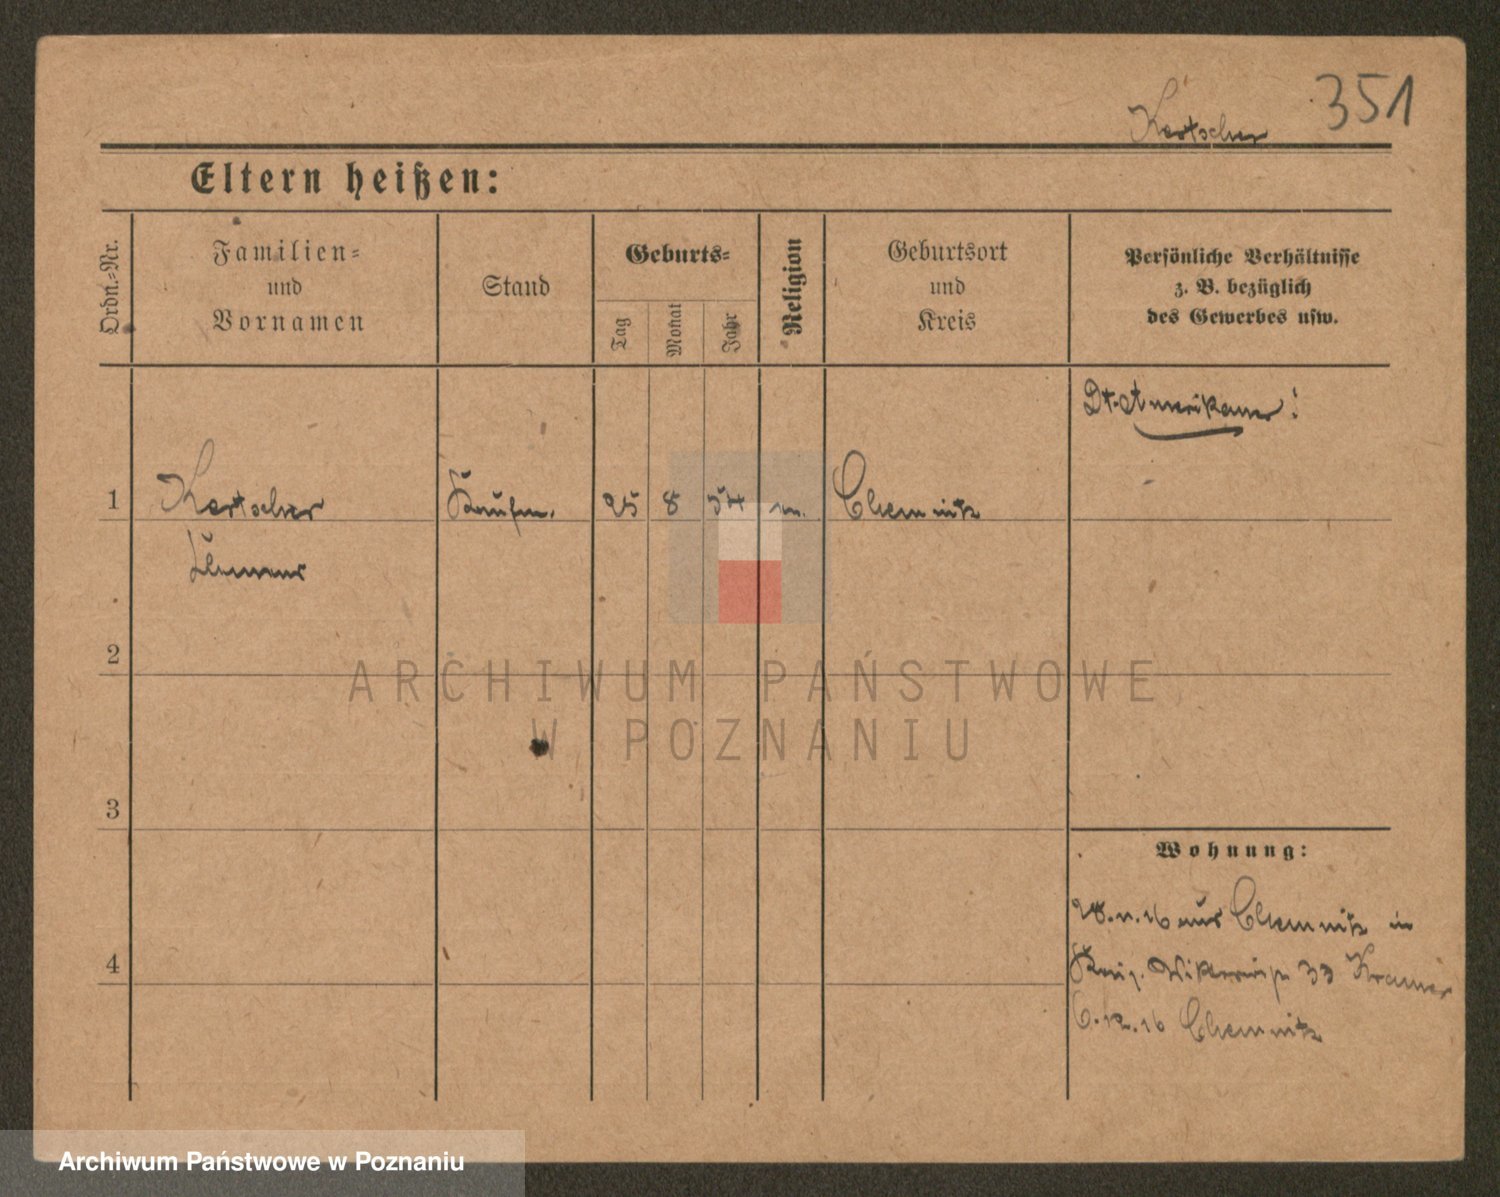 351
Kertscher
Eltern heißen:
Ordn.-Nr.
Familien-
und
Vornamen
Stand
Geburts-
Tag
Monat
Jahr
Religion
Geburtsort
und
Kreis
Persönliche Verhältnisse
z. B. bezüglich
des Gewerbes usw.
Dt. Amerikaner!
1
Kertscher
Kaufm.
25 8 54
Chemnitz
2
ARCHIWUM PAŃSTWOWE
W POZNANIU
3
Wohnung:
28.11.16 aus Chemnitz in
33 Kramer
4
6.12.16 Chemnitz
Archiwum Państwowe w Poznaniu